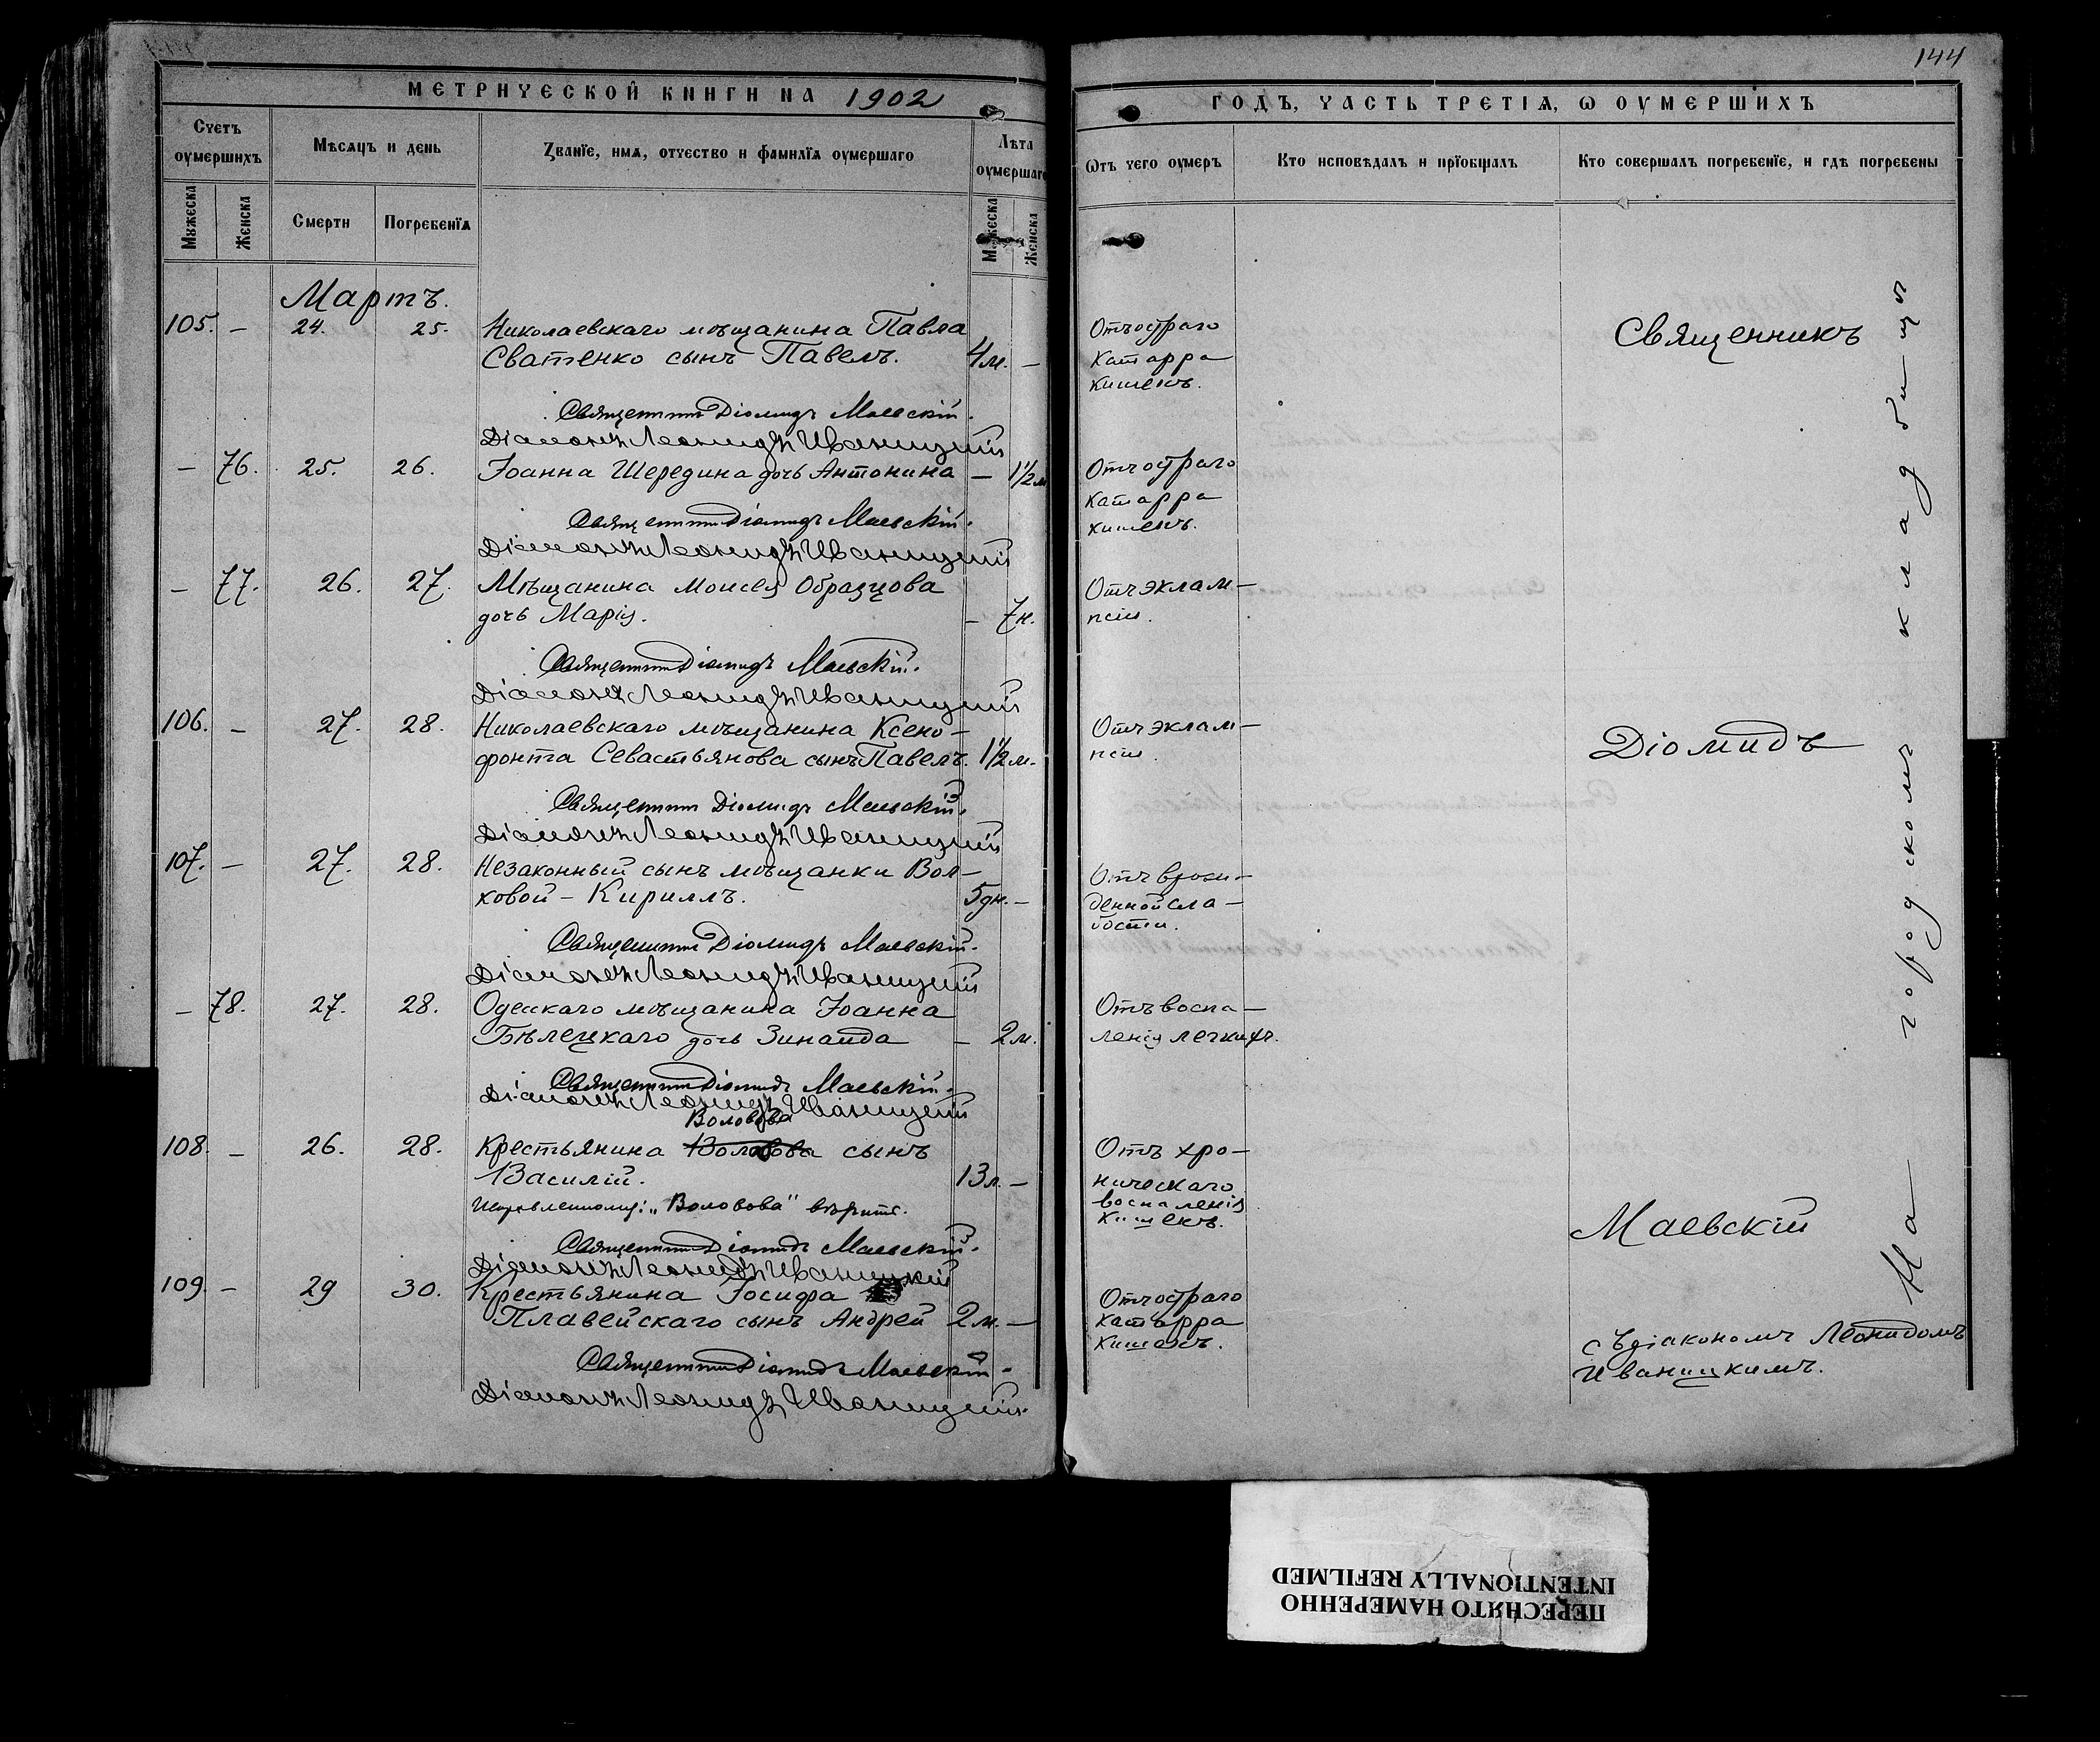 МЕТРИЧЕСКОЙ КНИГИ НА 1902
Счетъ оумершихъ
Мѣсяцъ и день
Званїе, имя, отчество и фамилїя оумершаго
Лѣта оумершаго
Мꙋжеска
Женска
Смерти
Погребенїя
Мꙋжеска
Женска
Мартъ.
105. — 24. 25. Николаевскаго мѣщанина Павла
Сватенко сынъ Павелъ. 4 м. —
Священникъ Діомидъ Маевскій.
Діаконъ Леонидъ Иваницкій
— 76. 25. 26. Іоанна Шередина дочь Антонина — 1½ м
Священникъ Діомидъ Маевскій.
Діаконъ Леонидъ Иваницкій
— 77. 26. 27. Мѣщанина Моисея Образцова
дочь Марія. — 7 н.
Священникъ Діомидъ Маевскій.
Діаконъ Леонидъ Иваницкій
106. — 27. 28. Николаевскаго мѣщанина Ксено-
фонта Севастьянова сынъ Павелъ. 1½ м. -
Священникъ Діомидъ Маевскій.
Діаконъ Леонидъ Иваницкій
107. — 27. 28. Незаконный сынъ мѣщанки Вол-
ковой - Кириллъ. 5 дн. -
Священникъ Діомидъ Маевскій.
Діаконъ Леонидъ Иваницкій
— 78. 27. 28. Одескаго мѣщанина Іоанна
Бѣлецкаго дочь Зинаида — 2 м.
Священникъ Діомидъ Маевскій.
Діаконъ Леонидъ Иваницкій
Воловова
108. — 26. 28. Крестьянина сынъ
Василій. 13 л. —
Исправленному: „Воловова" вѣрить.
Священникъ Діомидъ Маевскій.
Діаконъ Леонидъ Иваницкій
109. — 29 30. Крестьянина Іосифа
Плавейскаго сынъ Андрей 2 м. —
Священникъ Діомидъ Маевскій.
Діаконъ Леонидъ Иваницкій.
144
ГОДЪ, ЧАСТЬ ТРЕТІЯ, Ѡ ОУМЕРШИХЪ
Ѿтъ чего оумеръ
Кто исповѣдалъ и прїобщалъ
Кто совершалъ погребенїе, и гдѣ погребены
Отъ остраго
катарра
кишекъ.
Отъ остраго
катарра
кишекъ.
Отъ эклам-
псіи.
Отъ эклам-
псіи.
Отъ врож-
денной сла-
бости.
Отъ воспа-
ленія легкихъ.
Отъ хро-
ническаго
воспаленія
кишекъ.
Отъ остраго
катарра
кишекъ.
Священникъ
Діомидъ
Маевскій
съ діакономъ Леонидомъ
Иваницкимъ.
На городскомъ кладбищѣ
ПЕРЕСНЯТО НАМЕРЕННО
INTENTIONALLY REFILMED